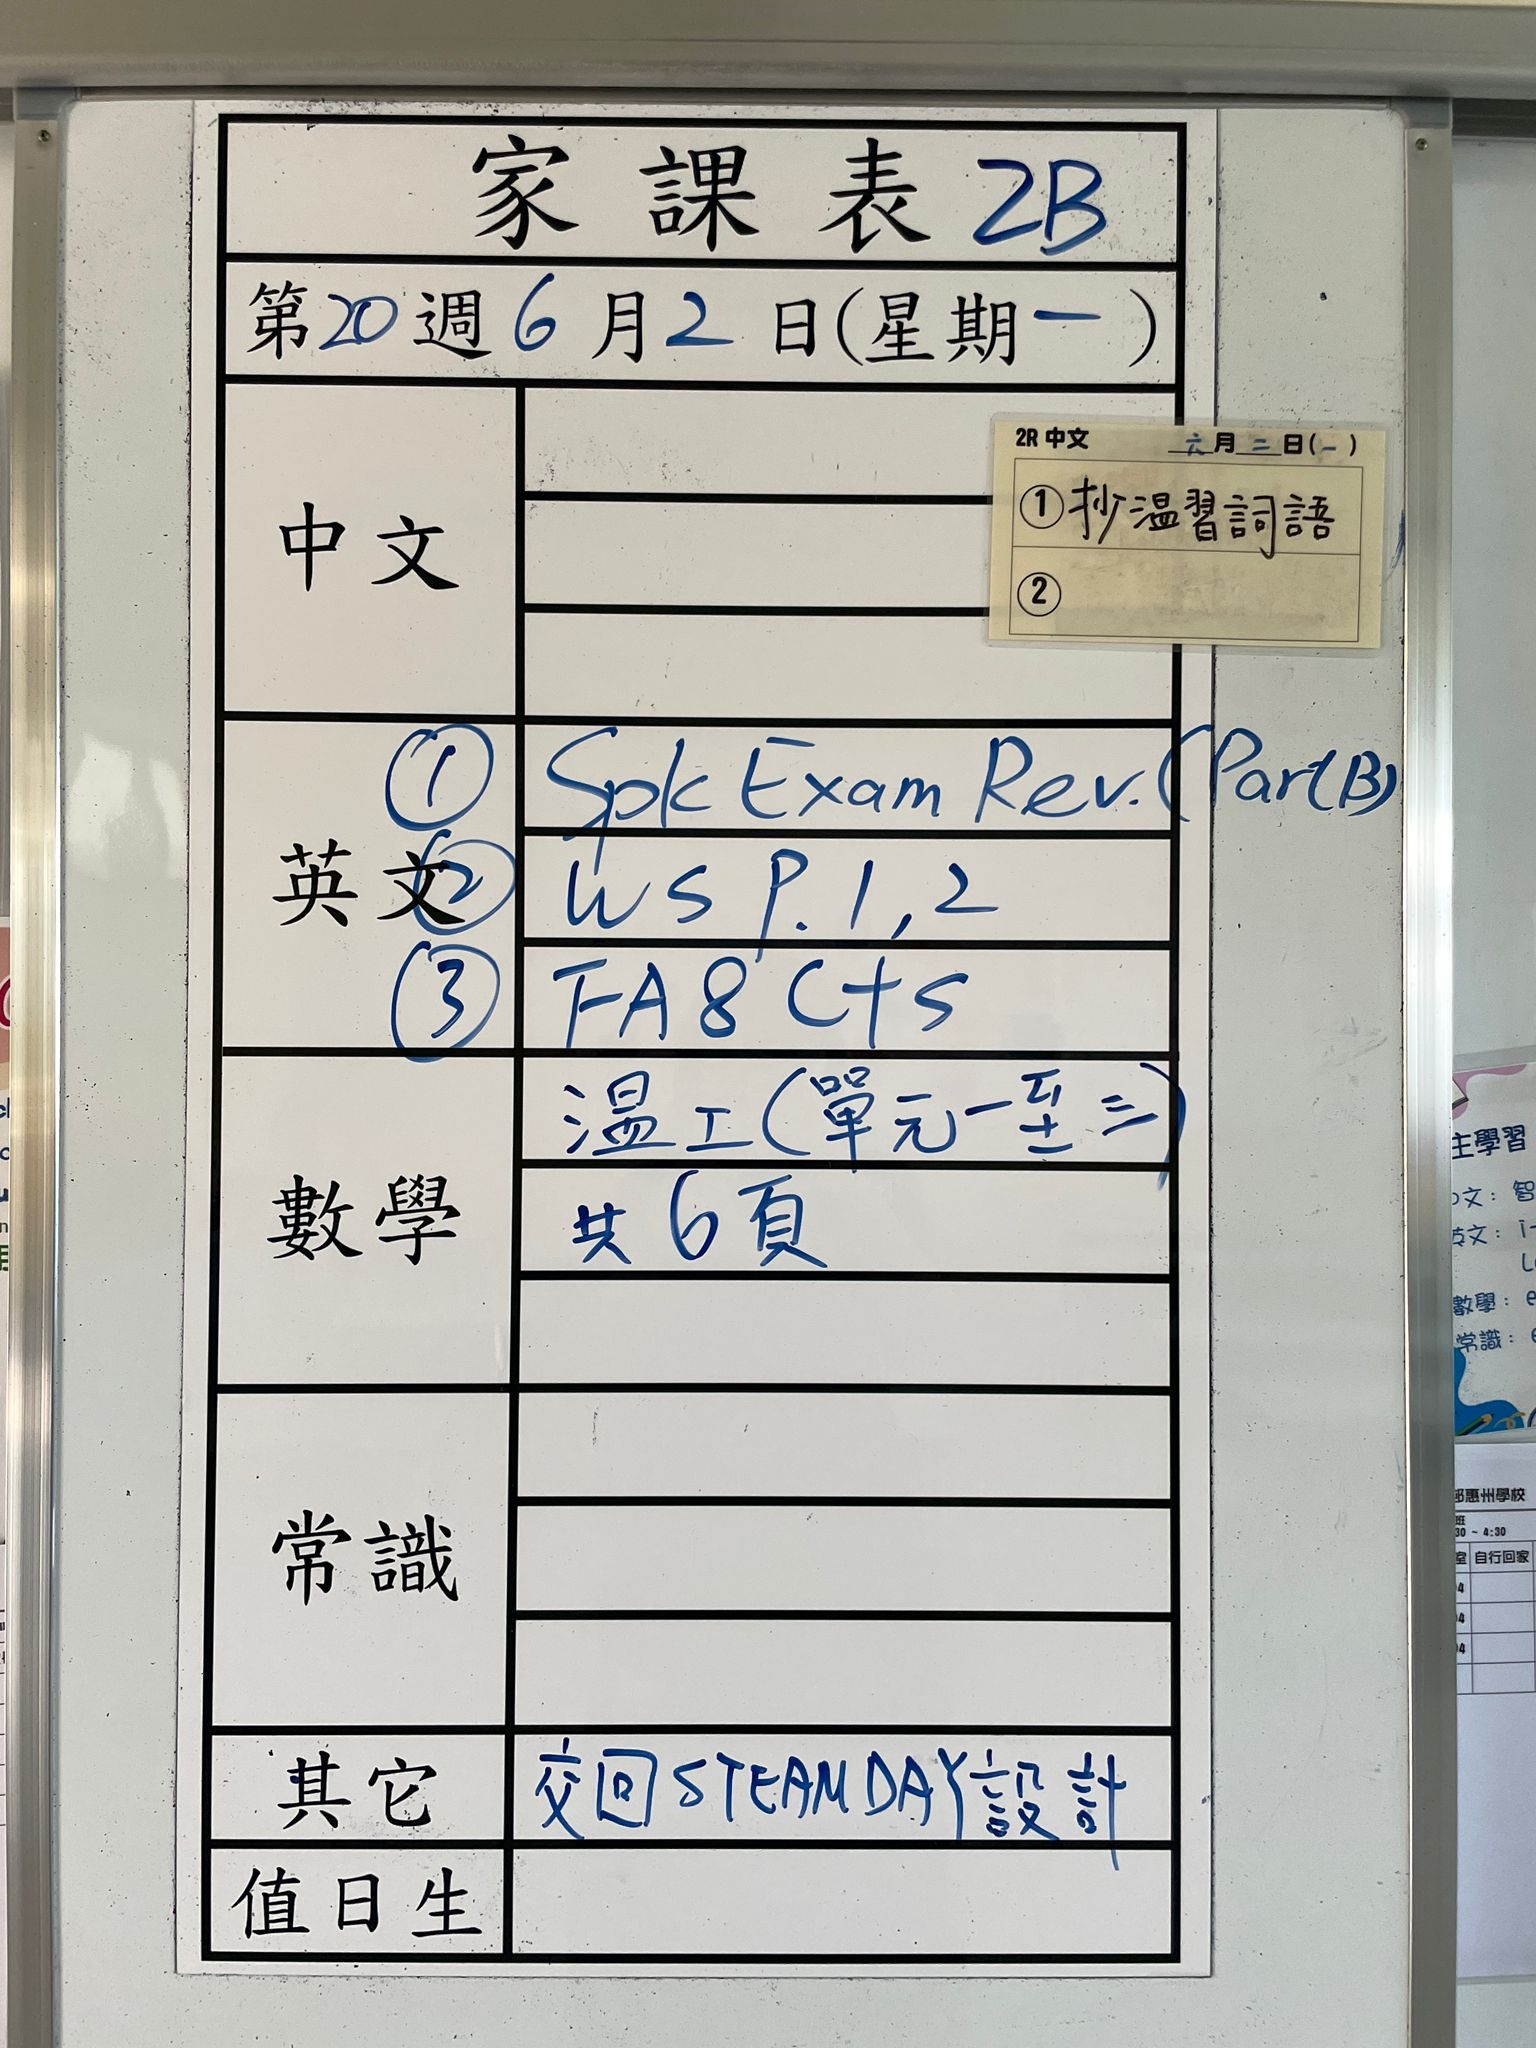 家課表 2B
第20週6月2日(星期一)
中文
2R 中文 六月二日(一)
① 抄溫習詞語
②
英文
① Spk Exam Rev. (Part B)
② WS P.1,2
③ FA8 Cts
數學
溫工(單元一至三)
共6頁
常識
其它
交回STEAM DAY設計
值日生
主學習
中文: 智
英文: i-
數學: e
常識: e
惠州學校
班
30 ~ 4:30
自行回家